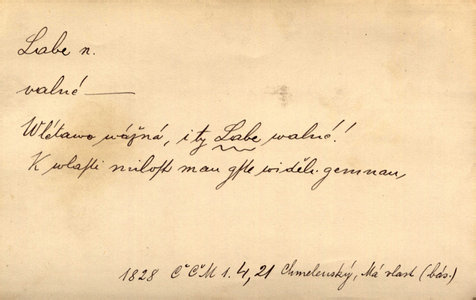 Labe n.
valné —
Wltawo wážná, i ty Labe walné!
K wlasti milost mau gste widěli gemnau,
1828 ČČM 1.4,21 Chmelenský, Má vlast (bás.)